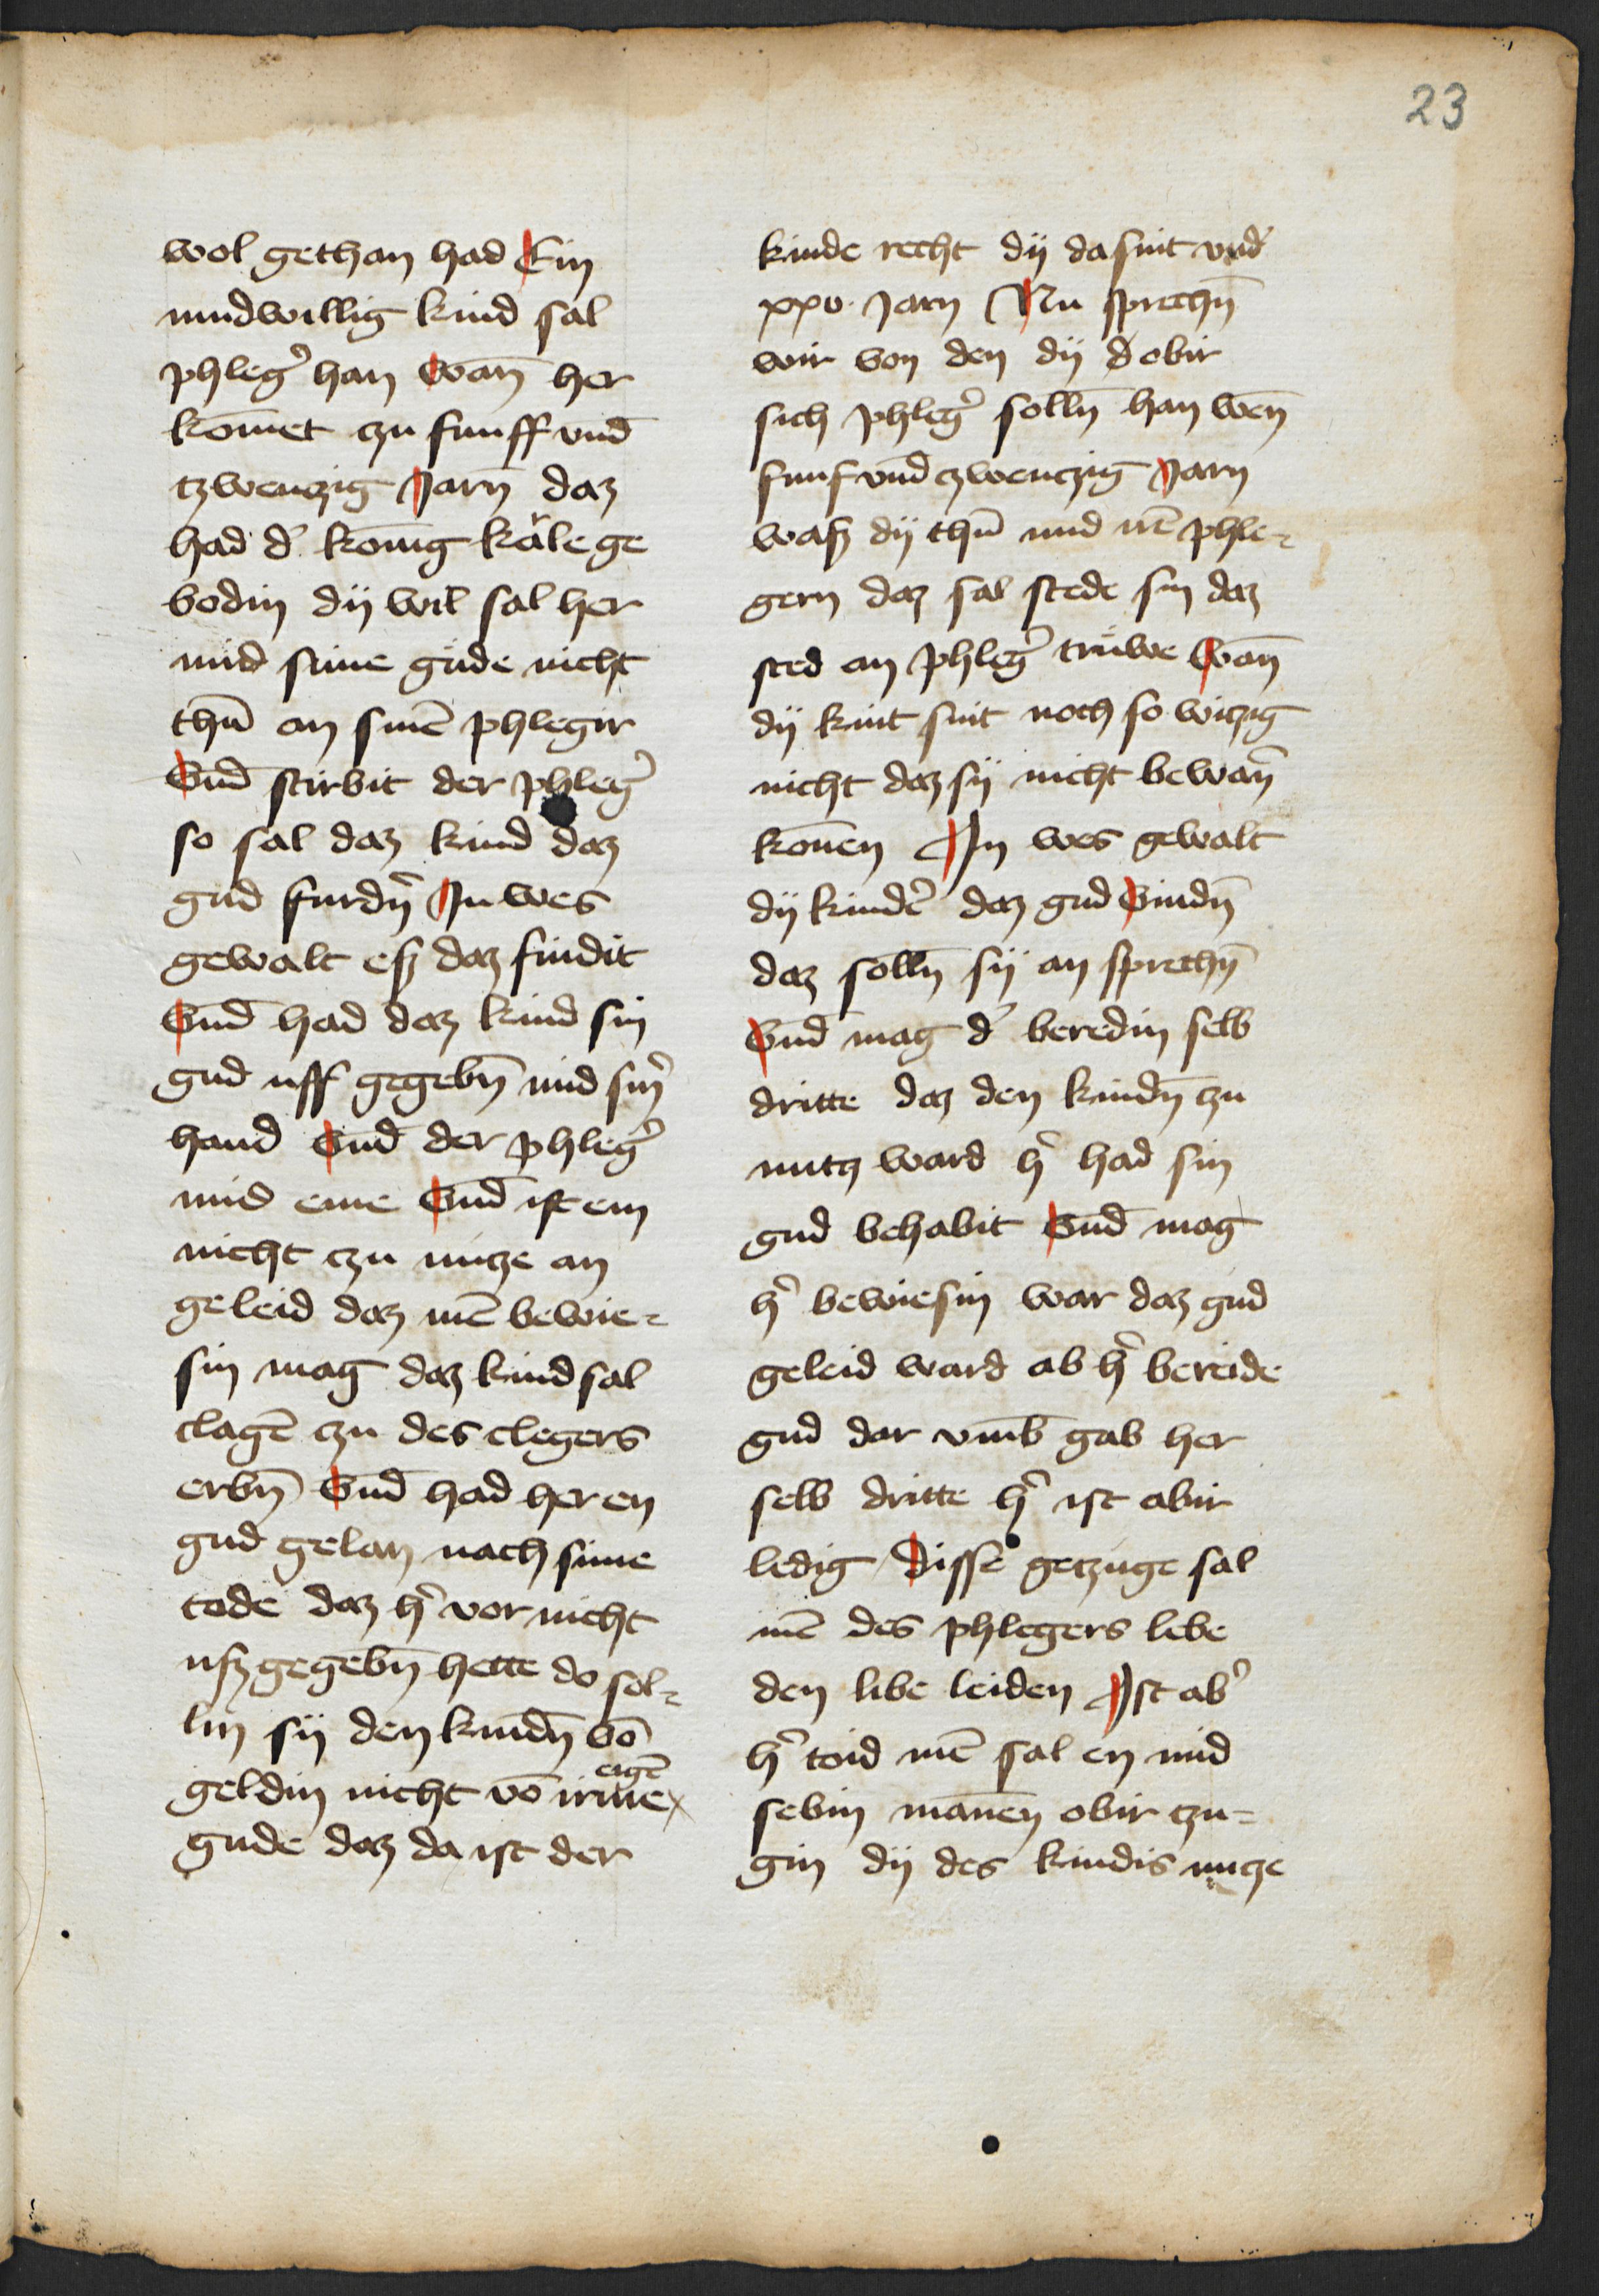 23
wol gethan had Ein
mudwillig kind sal
phleg&#x27; han wan̄ her
kōmet czu funff vnd̄
tzwenczig Jarn̄ daz
had d&#x27; kōnig karle ge
bodin dij wil sal her
mid sime gude nicht
thū an sinē phlegir
Vnd̄ stirbit der phleg&#x27;
so sal daz kind daz
gud furdn̄ In wes
gewalt eß daz findit
Vnd̄ had daz kind sin
gud uff gegebn̄ mid sin&#x27;
hand Vnd̄ der phleg&#x27;
mid eme Vnd̄ ist em
nicht czu nucze an
geleid daz mē bewie-
sin mag daz kind sal
clagē czu des clegers
erbn̄ Vnd̄ had her en
gud gelan nach sime
tode daz h&#x27; vor nicht
ußgegebn̄ hette do sol-
lin sij den kindn̄ vō
geldin nicht vō irme eigē
gude daz da ist der
kinde recht dij da sint vnd&#x27;
xxv· Jarn Nu sprechn̄
wir von den dij d&#x27; obir
sich phleg&#x27; solln̄ han wen̄
funf vnd̄ czwenczig Jarn
waß dij thū mid irē phle-
gern daz sal stede sin daz
sted an phleg&#x27; truwe wan̄
dij kint sint noch so witzig
nicht daz sij nicht bewan̄
konen In wes gewalt
dij kind&#x27; daz gud Vindn̄
daz solln̄ sij an sprechn̄
Vnd̄ mag d&#x27; beredin selb
dritte daz den kindn̄ czu
nutz ward h&#x27; had sin
gud behabit Vnd̄ mag
h&#x27; bewiesin war daz gud
geleid ward ab h&#x27; bereide
gud dar vmb gab her
selb dritte h&#x27; ist abir
ledig Disse getzuge sal
mē des phlegers lebe
den libe leiden Ist ab&#x27;
h&#x27; toid mē sal en mid
sebin mānen obir czu-
gin dij des kindis nucze